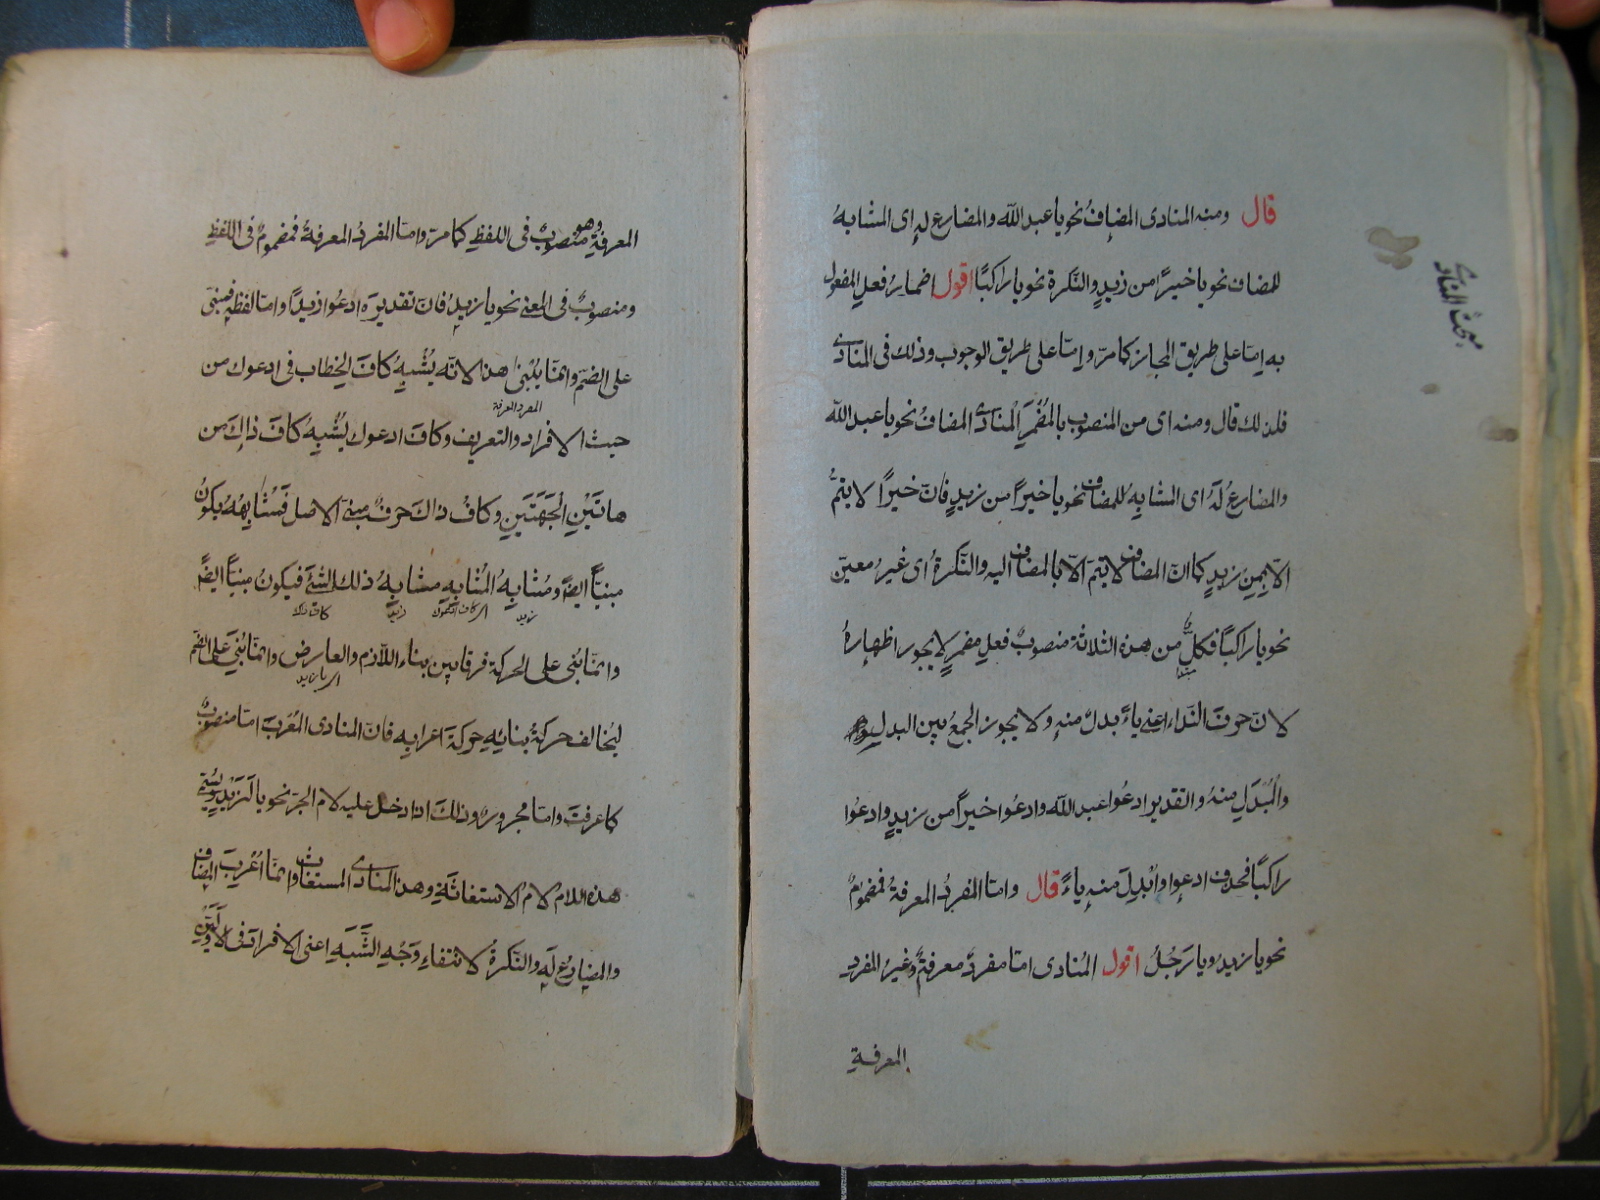 قال ومنه المنادى المضافُ نحو يا عبد الله والمضارع له اى المشابهُ
للمضاف نحو يا خيراً من زيدٍ والنكرة نحو يا راكبًا اقول اضمارُ فعلِ المفعول
به اِمّا على طريق الجايز كما مرّ واِمّا على طريق الوجوب وذلك فى المنادى
فلذلك قال ومنه اى من المنصوب بالمُضْمَرِ الْمُنادى المضافُ نحو يا عبد الله
والمضارعُ لَهُ اى المشابِهُ للمضاف نحو يا خيراً من زيدٍ فانّ خيراً لا يتمُّ
الّا بِمِن زيدٍ كما انّ المضاف لا يتم الّا بالمضاف اليه والنّكرةُ اى غيرُ معيّن
نحو يا راكباً فكلٌّ من هذه الثلاثة منصوبٌ فعلٍ مضمرٍ لا يجوز اظهارهُ
مبتدا
لانّ حرفَ النّداء اعنى ياءً بدلٌ منه ولا يجوز الجمعُ بين البدل
والْمُبْدَلِ منهُ والتقدير ادعُوا عبد الله وادعُوا خيراً من زيدٍ وادعُوا
راكبًا فحذف ادعوا واُبْدِلَ منه ياءً قال وامّا المفردُ المعرفةُ فمضمومٌ
نحو يا زيد ويا رَجُلُ اقول المُنادى امّا مفردٌ معرفةٌ وغيرُ المفرد
المعرفةِ
مبحث المنادى
المعرفةِ وهو منصوبٌ فى اللفظِ كما مرّ وامّا المفردُ المعرفةُ فمضمومٌ فى اللّفظِ
ومنصوبٌ فى المعنى نحو يا زيدُ فانّ تقديرَه ادعُوا زيداً وامّا لفظه فمبنى
على الضمّ وانمّا يُبْنى هذا لانّه يُشْبِهُ كافَ الخطاب فى ادعوك من
المفرد المعرفة
حيث الافراد والتعريف وكافَ ادعوك يُشْبِهُ كافَ ذاك من
هاتَيْنِ الْجِهَتَيْنِ وكافُ ذاك حرفٌ مبنىّ الاصل فمُشابِهُهُ يكونُ
مبنيّاً ايضً ومُشابِهُ المُشابِهِ مشابِهُ ذلك الشئ فيكونُ مبنيّاً ايضً
زيد الكاف ادعوك زيد كاف ذاك
وانمّا بُنى على الحركة فرقا بين بناء اللّازم والعارض وانمّا بُنِىَ على الضّم
اى يا زيد
ليُخالفَ حركةُ بنائِهِ حركةَ اعرابِه فانّ المنادى المُعْرَبَ امّا منصوبٌ
كما عرفتَ وامّا مجرورٌ وذلك اذا دخل عليه لام الجرّ نحو يا لَزَيْدٍ ويُسَمّى
هذه اللام لامَ الاستغاثةِ وهذا المنادى المستغاثَ وانمّا اُعْرِبَ المضاف
والمضارعُ لَهِ والنّكرةُ لانتفاءِ وَجْهِ الشَّبَهِ اعنى الافرادَ فى الاَوَّلَيْنِ